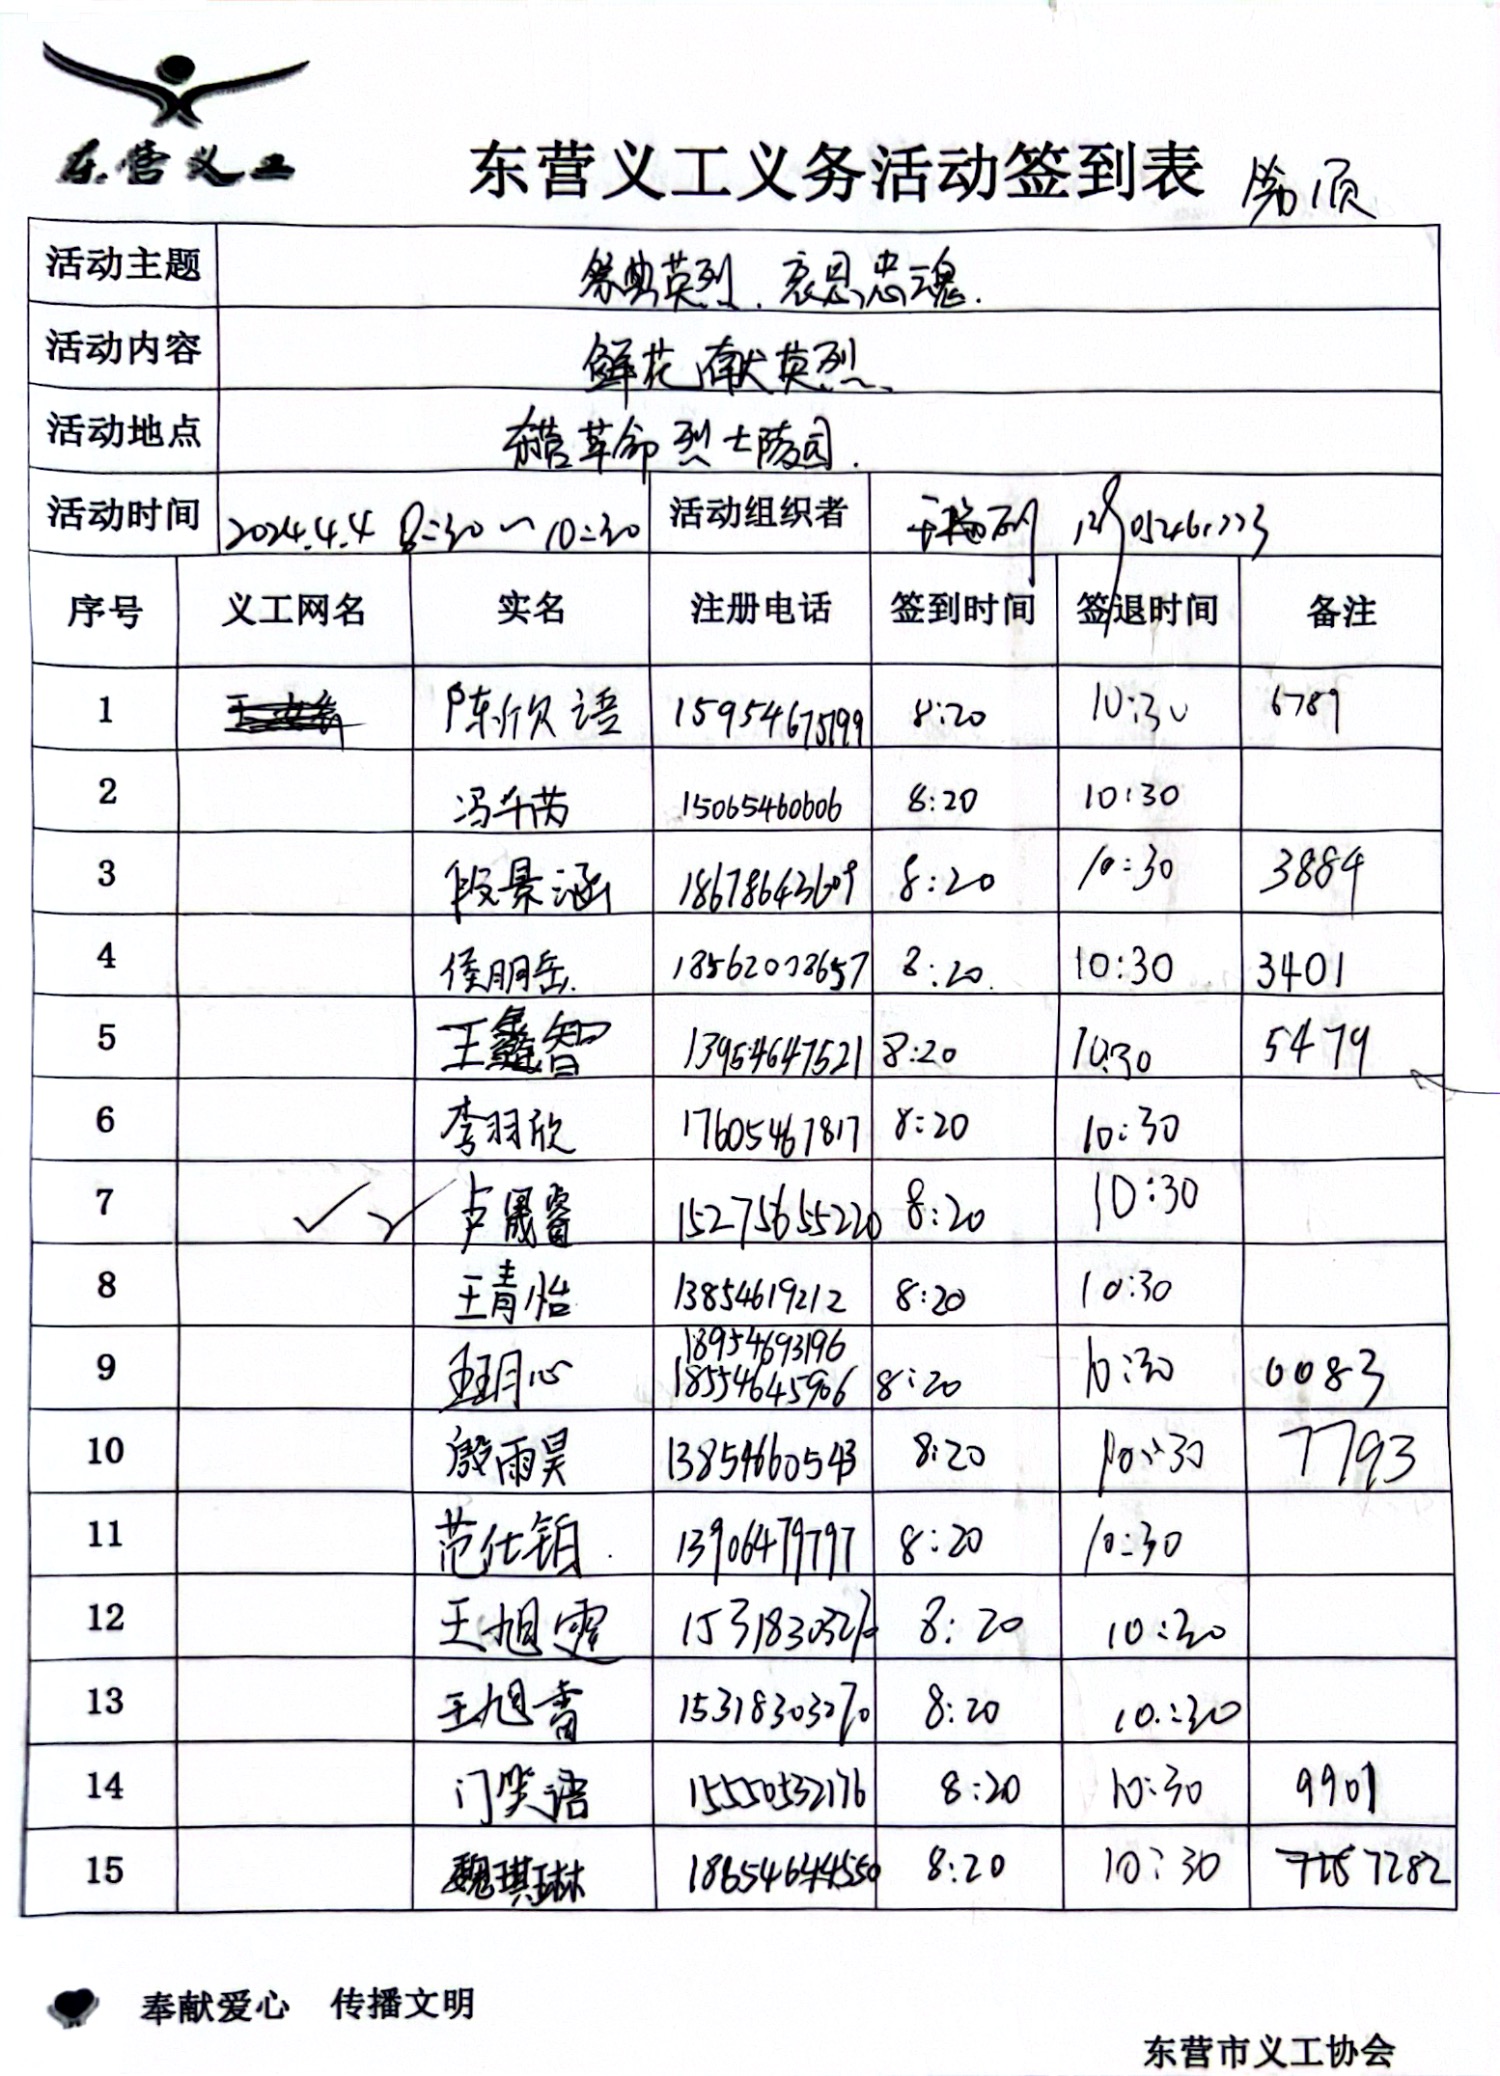 东营义工
东营义工义务活动签到表
活动主题 祭典英烈.哀思忠魂.
活动内容 鲜花献英烈.
活动地点 东营革命烈士陵园.
活动时间 2024.4.4 8:30~10:30 活动组织者
序号 义工网名 实名 注册电话 签到时间 签退时间 备注
1 陈欣语 15954675199 8:20 10:30 6789
2 15065460606 8:20 10:30
3 段景涵 18678643609 8:20 10:30 3884
4 侯朋岳. 18562078657 8:20. 10:30 3401
5 王鑫智 13954647521 8:20 10:30 5479
6 李羽欣 17605467817 8:20 10:30
7 卢晟睿 15275655220 8:20 10:30
8 王青怡 13854619212 8:20 10:30
18954693196
9 王月心 18554645906 8:20 10:30 0083
10 殷雨昊 13854660543 8:20 10:30 7793
11 范仕铂. 13906479797 8:20 10:30
12 王旭霏 8:20 10:30
13 王旭 8:20 10:30
14 门笑语 15550532176 8:20 10:30 9901
15 魏琪琳 18654644550 8:20 10:30 7282
奉献爱心 传播文明
东营市义工协会